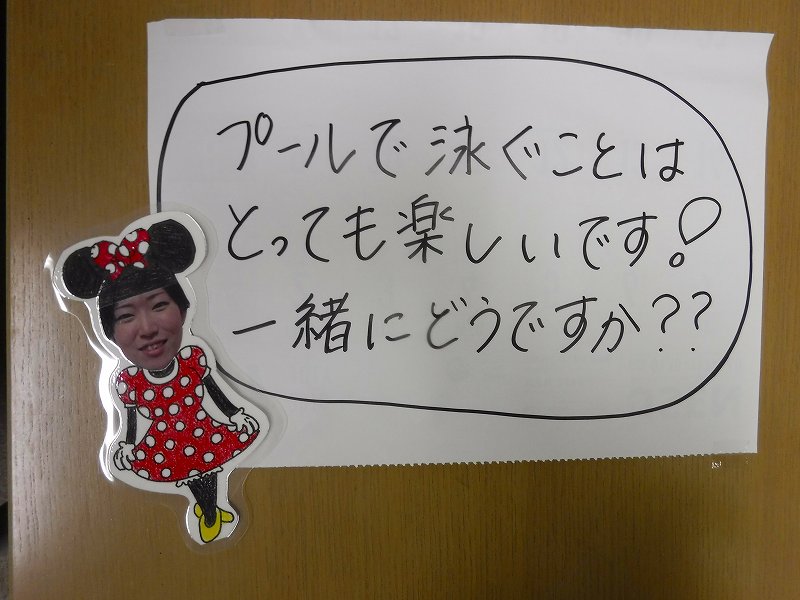 プールで泳ぐことは
とっても楽しいです!
一緒にどうですか??